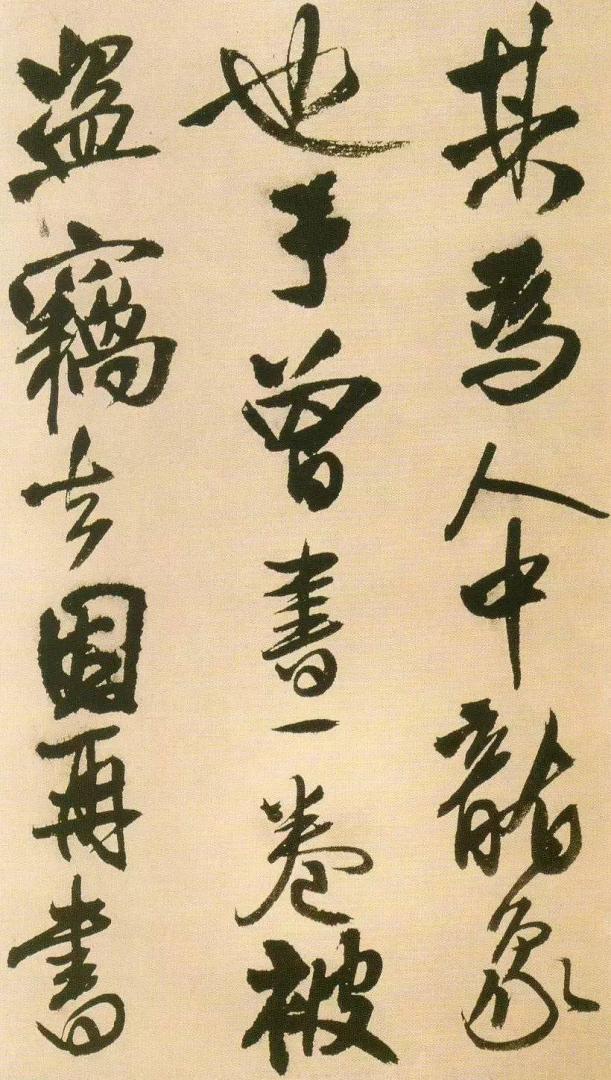 某為人中龍象
也予曾書一卷被
盜竊去因再書